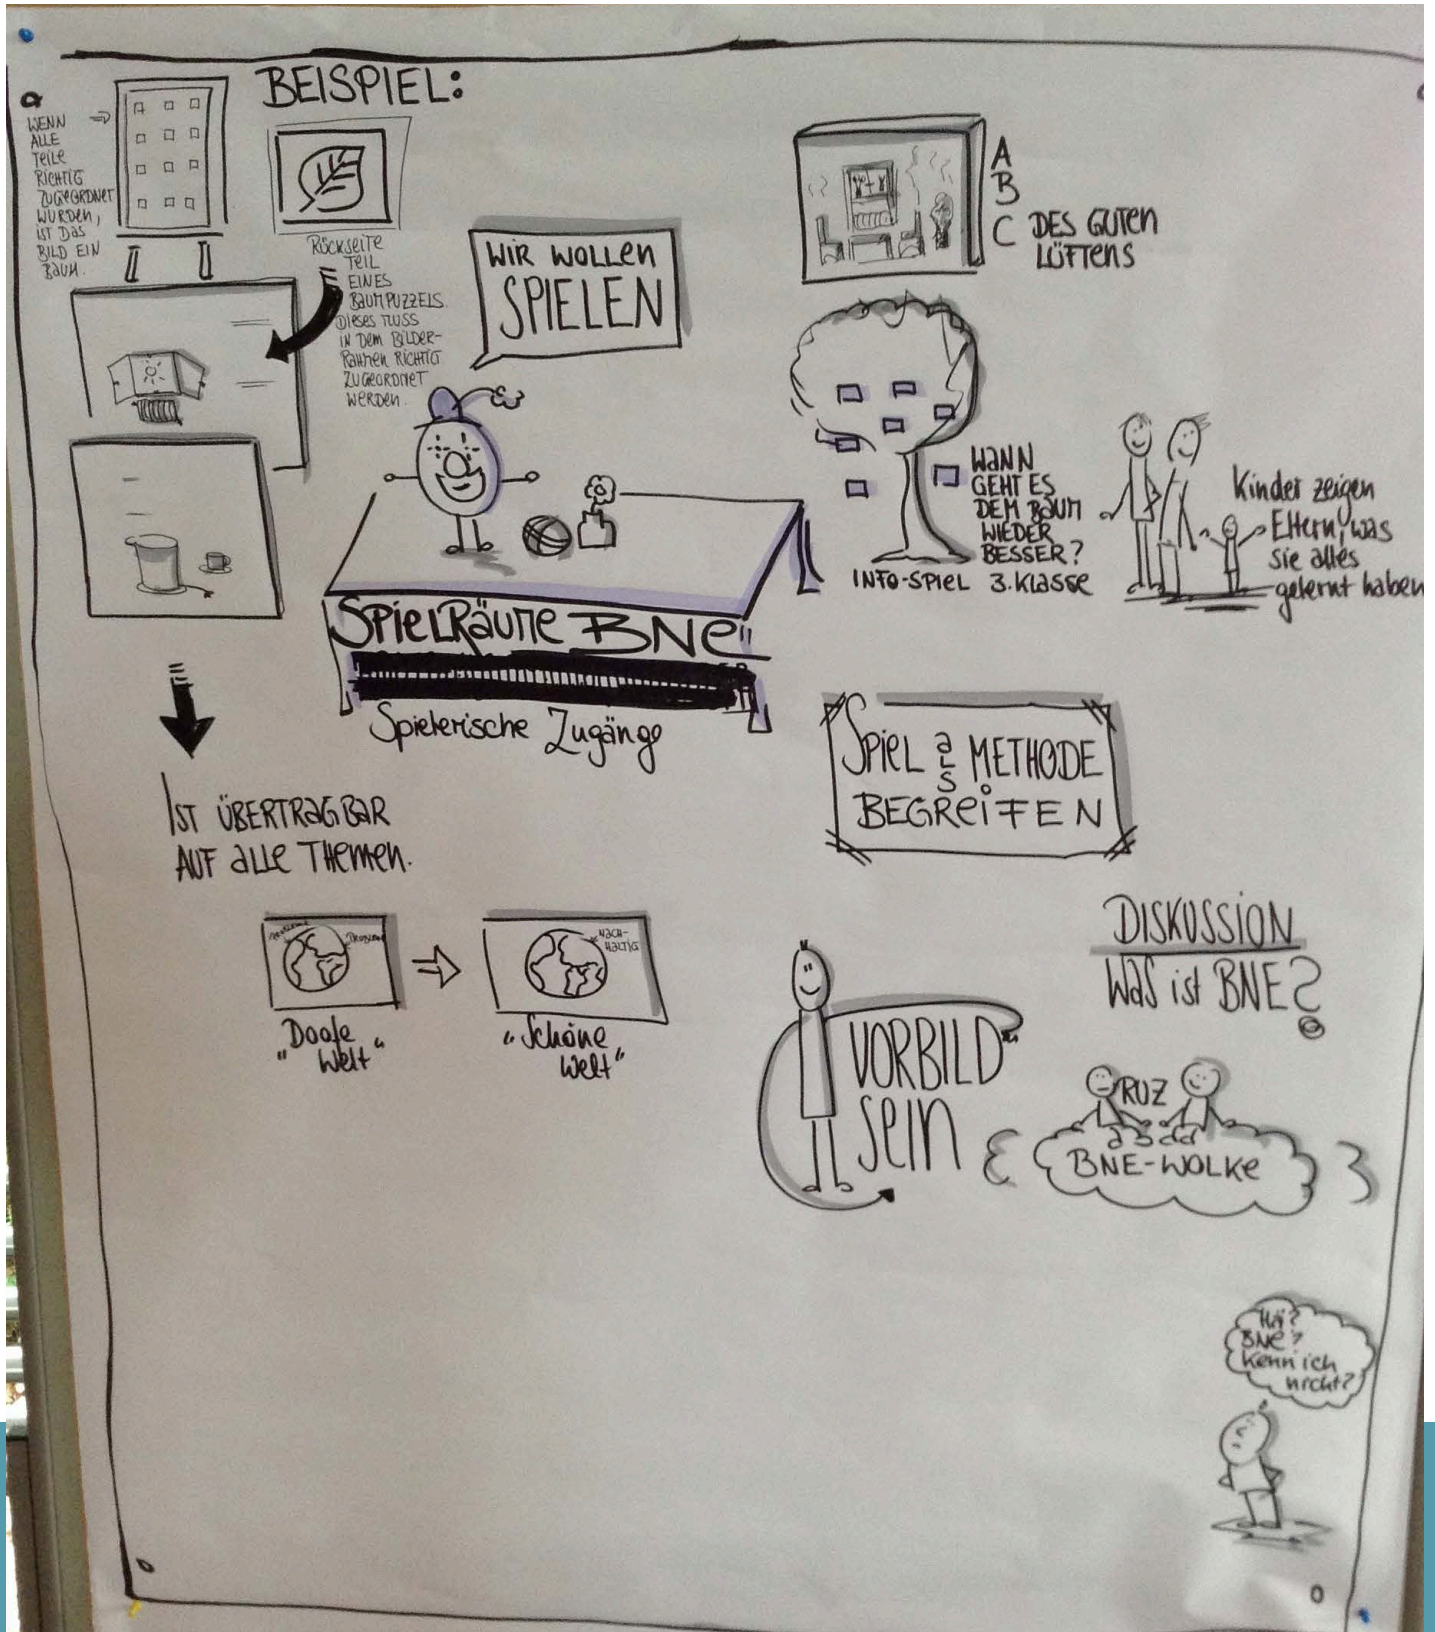 BEISPIEL:
WENN
ALLE
TEILE
RICHTIG
ZUGEORDNET
WURDEN,
IST DAS
BILD EIN
BAUM.
RÜCKSEITE
TEIL
EINES
BAUMPUZZELS.
DIESES MUSS
IN DEM BILDER-
RAHMEN RICHTIG
ZUGEORDNET
WERDEN.
WIR WOLLEN
SPIELEN
A
B
C DES GUTEN
LÜFTENS
WANN
GEHT ES
DEM BAUM
WIEDER
BESSER?
INFO-SPIEL 3. KLASSE
Kinder zeigen
Eltern, was
sie alles
gelernt haben
SPIELRÄUME BNE"
Spielerische Zugänge
SPIEL ALS METHODE
BEGREIFEN
IST ÜBERTRAGBAR
AUF ALLE THEMEN.
PROBLEM
NACH-
HALTIG
"Doofe
Welt"
"Schöne
Welt"
VORBILD
SEIN
DISKUSSION
WAS IST BNE?
RUZ
BNE-WOLKE
Hä?
BNE?
Kenn ich
nicht?